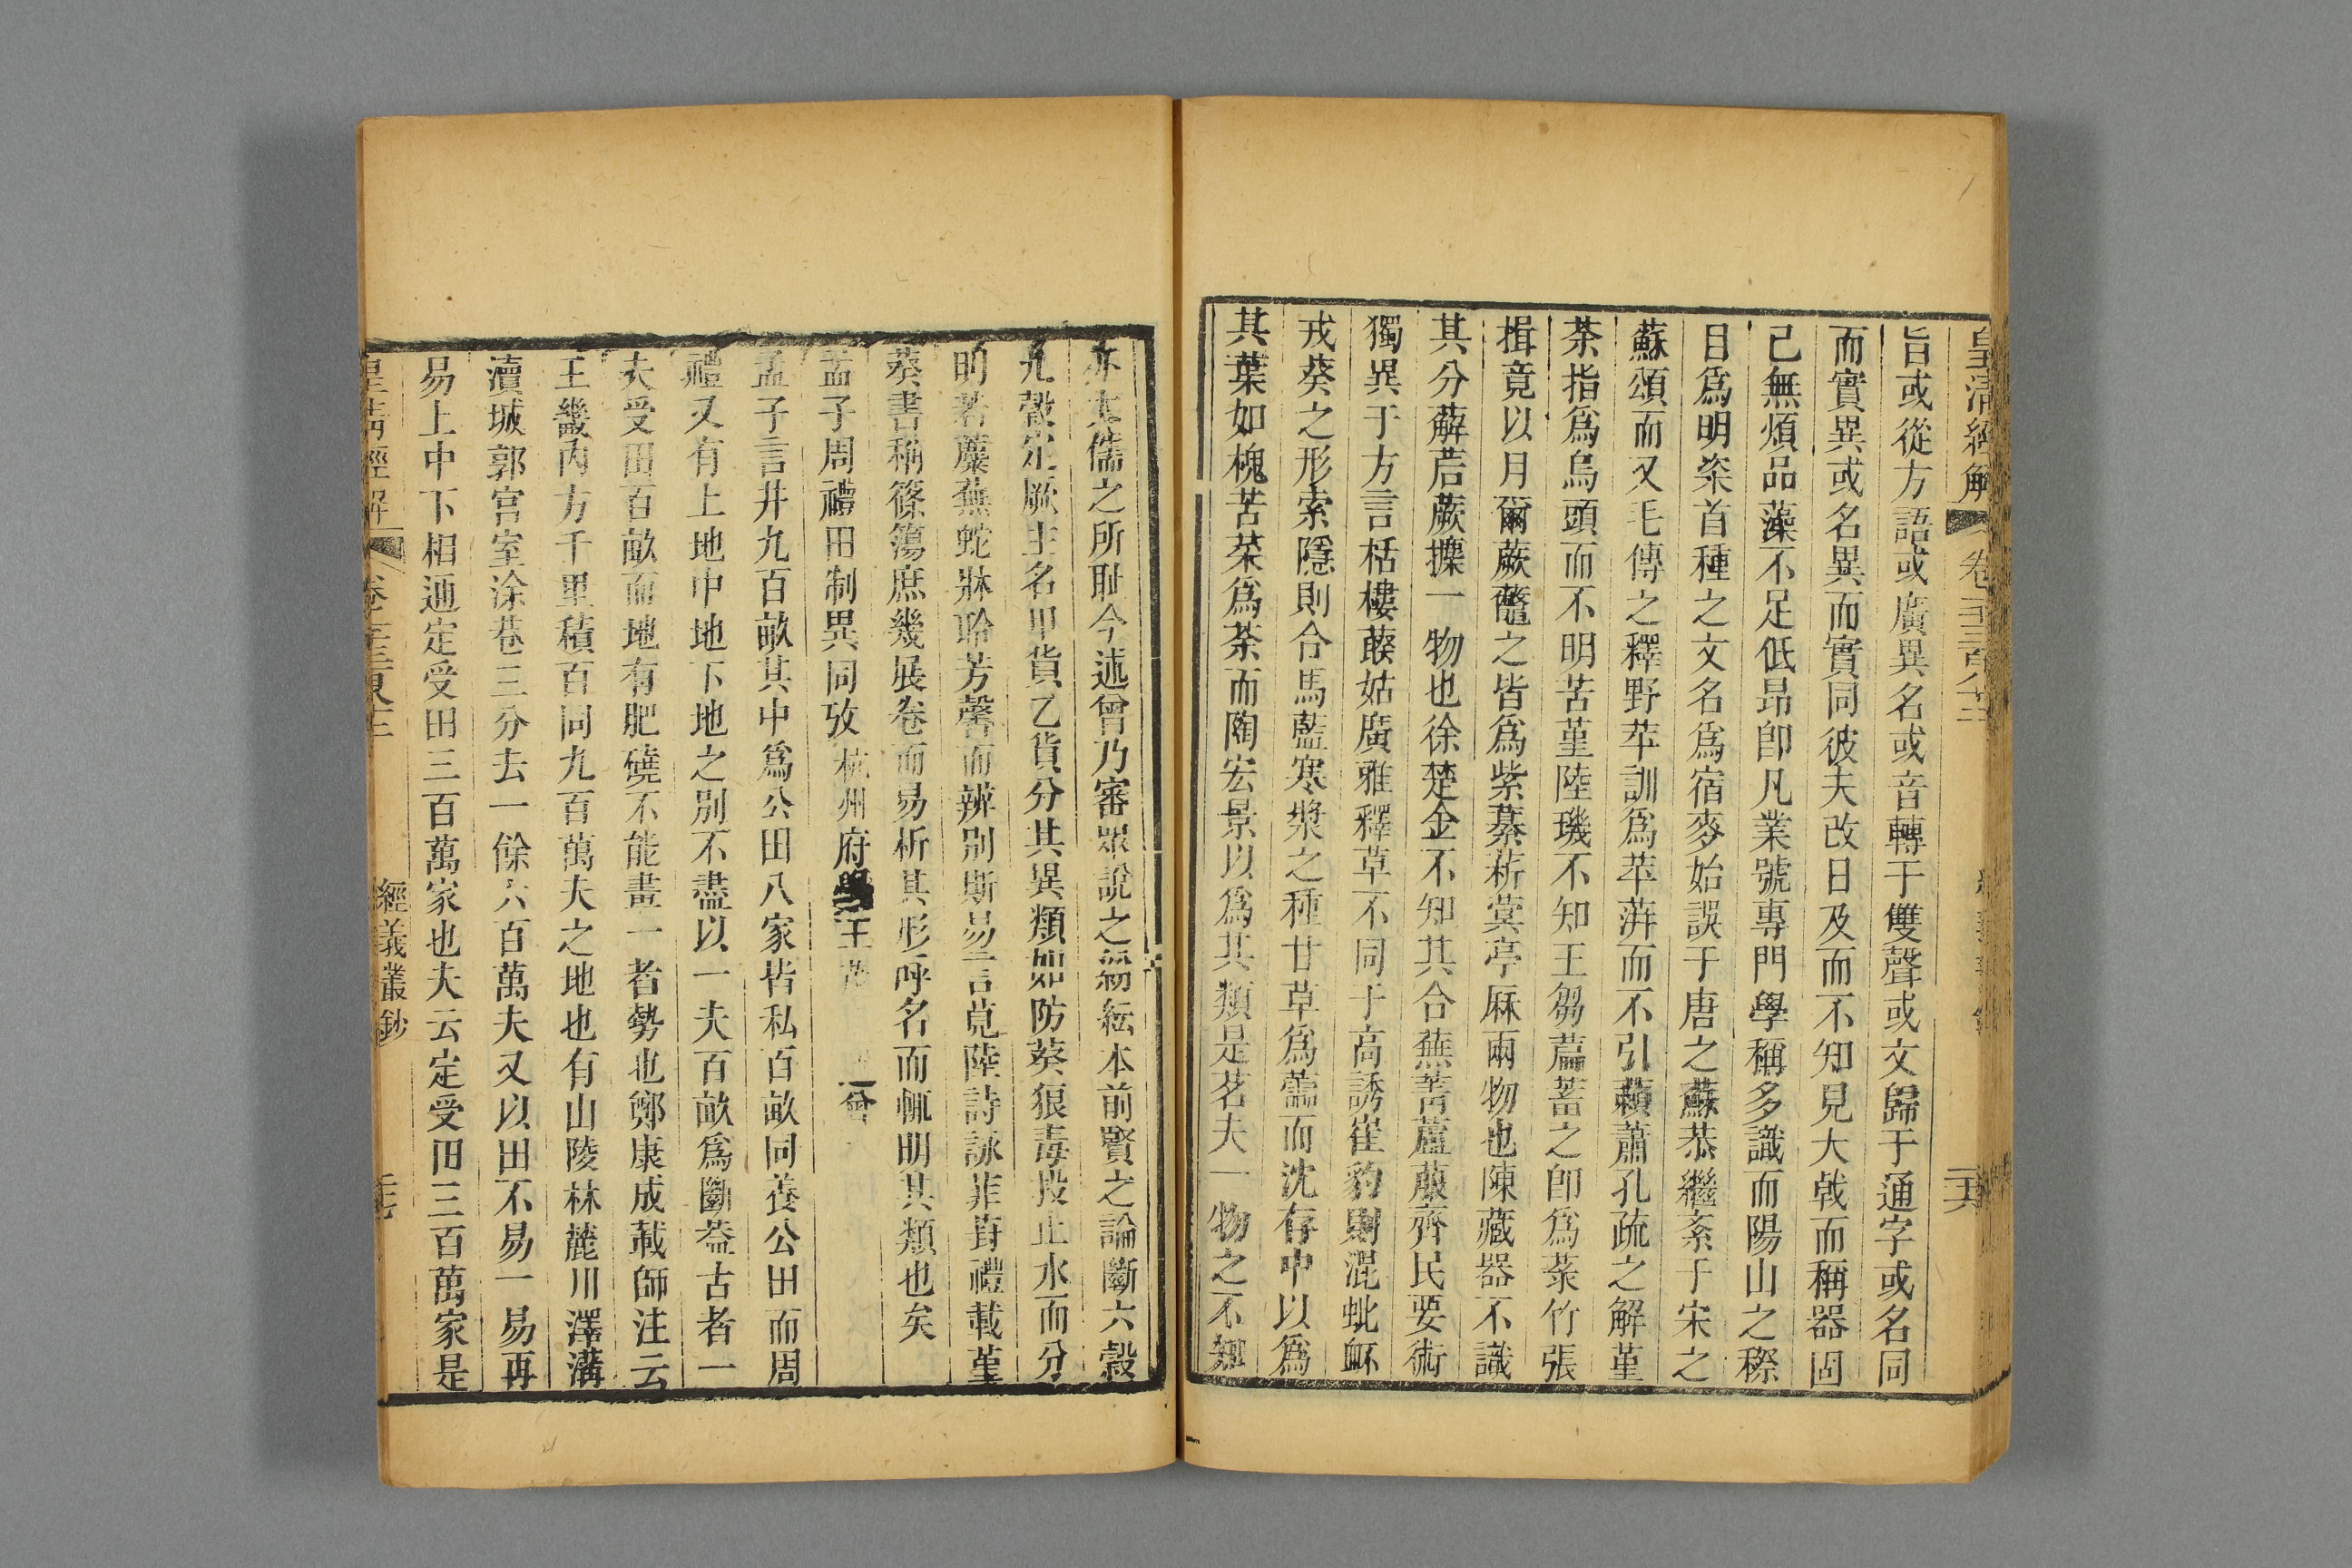 皇清經解 卷一千三百八十二 二六
旨或從方語或廣異名或音轉于雙聲或文歸于通字或名同
而實異或名異而實同彼夫改日及而不知見大戟而稱器固
己無煩品藻不足低昂卽凡業號專門學稱多識而陽山之穄
目爲明粢首種之文名爲宿麥始誤于唐之蘇恭繼紊于宋之
蘇頌而又毛傳之釋野苹訓爲苹蓱而不引藾蕭孔疏之解堇
荼指爲烏頭而不明苦堇陸璣不知王芻萹蓄之卽爲菉竹張
揖竟以月爾蕨虌之皆爲紫綦菥蓂亭厤兩物也陳藏器不識
其分薢茩蕨攗一物也徐楚金不知其合蕪菁蘆菔齊民要術
獨異于方言栝樓䕷姑廣雅釋草不同于高誘崔豹則混蚍衃
戎葵之形索隱則合馬藍寒漿之種甘草爲蘦而沈存中以爲
其葉如槐苦荼爲茶而陶宏景以爲其類是茗夫一物之不知
亦大儒之所耻今述曾乃審眾說之紛紜本前賢之論斷六穀
九穀定厥主名甲貨乙貨分其異類如防葵狼毒投止水而分
明若蘪蕪蛇牀聆芳馨而辨別斯易言莧陸詩詠菲葑禮載堇
葵書稱篠簜庶幾展卷而易析其形呼名而輒明其類也矣
孟子周禮田制異同攷 杭州府學王
孟子言井九百畝其中爲公田八家皆私百畝同養公田而周
禮又有上地中地下地之别不盡以一夫百畝爲斷葢古者一
夫受田百畝而地有肥磽不能畫一者勢也鄭康成載師注云
王畿內方千里積百同九百萬夫之地也有山陵林麓川澤溝
瀆城郭宮室涂巷三分去一餘六百萬夫又以田不易一易再
易上中下相通定受田三百萬家也夫云定受田三百萬家是
皇清經解 卷 經義叢鈔 二七